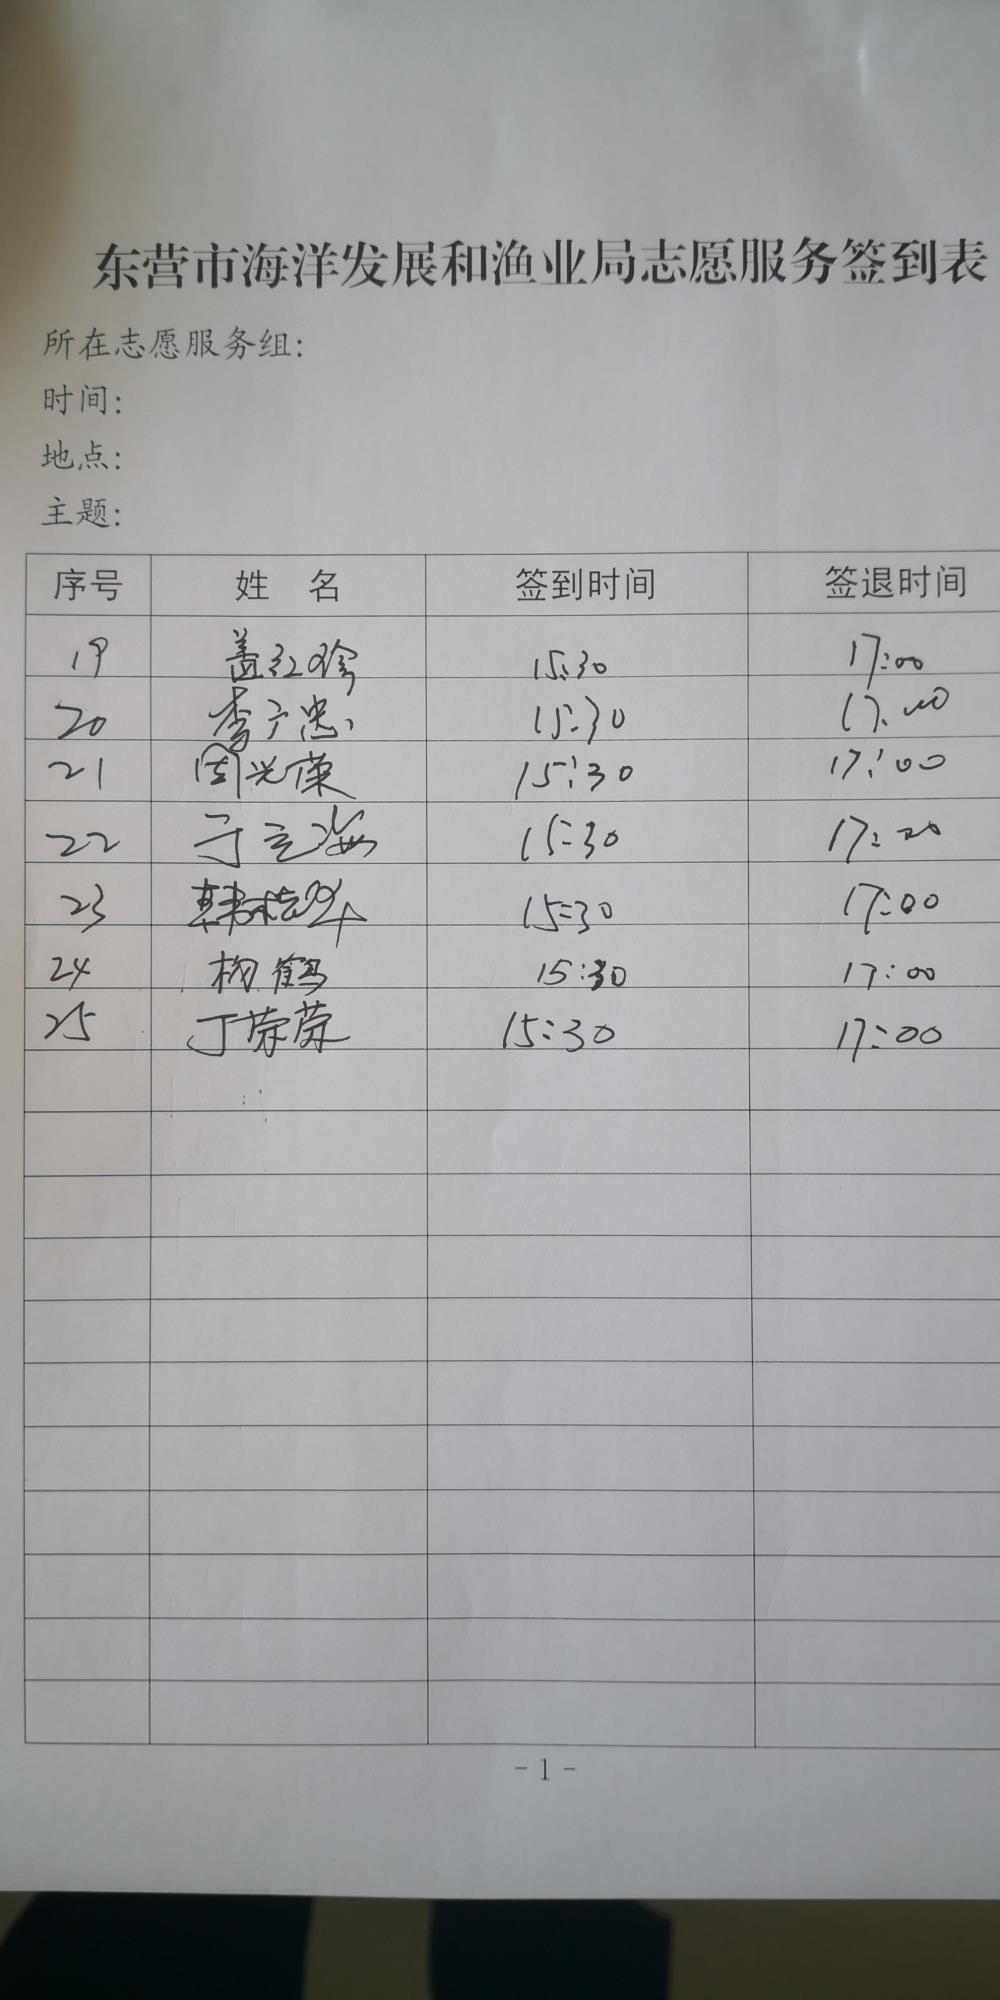 东营市海洋发展和渔业局志愿服务签到表
所在志愿服务组:
时间:
地点:
主题:
序号 姓 名 签到时间 签退时间
19 盖红珍 15:30 17:00
20 李广忠 15:30 17:00
21 周光荣 15:30 17:00
22 于立海 15:30 17:00
23 韩桂华 15:30 17:00
24 杨鹤 15:30 17:00
25 丁荣荣 15:30 17:00
- 1 -